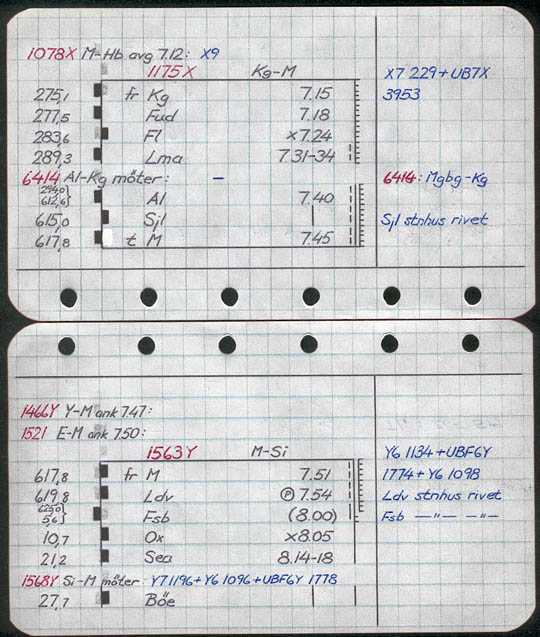 1078X M-Hb avg 7.12: X9
1175X Kg-M X7 229+UB7X
275,1 fr Kg 7.15 3953
277,5 Fud 7.18
283,6 Fl x7.24
289,3 Lma 7.31-34
6414 Al-Kg möter: - 6414: Mgbg-Kg
294,0
612,6} Al 7.40
615,0 Sjl | Sjl stnhus rivet
617,8 t M 7.45
1466Y Y-M ank 747:
1521 E-M ank 750:
1563Y M-Si Y6 1134+UBF6Y
617,8 fr M 7.51 1774+Y6 1098
619,8 Ldv (P) 7.54 Ldv stnhus rivet
625,0
5,6} Fsb (8.00) Fsb —"— —"—
10,7 Ox x8.05
21,2 Sea 8.14-18
1568Y Si-M möter: Y7 1196+Y6 1096+UBF6Y 1778
27,7 Böe | |